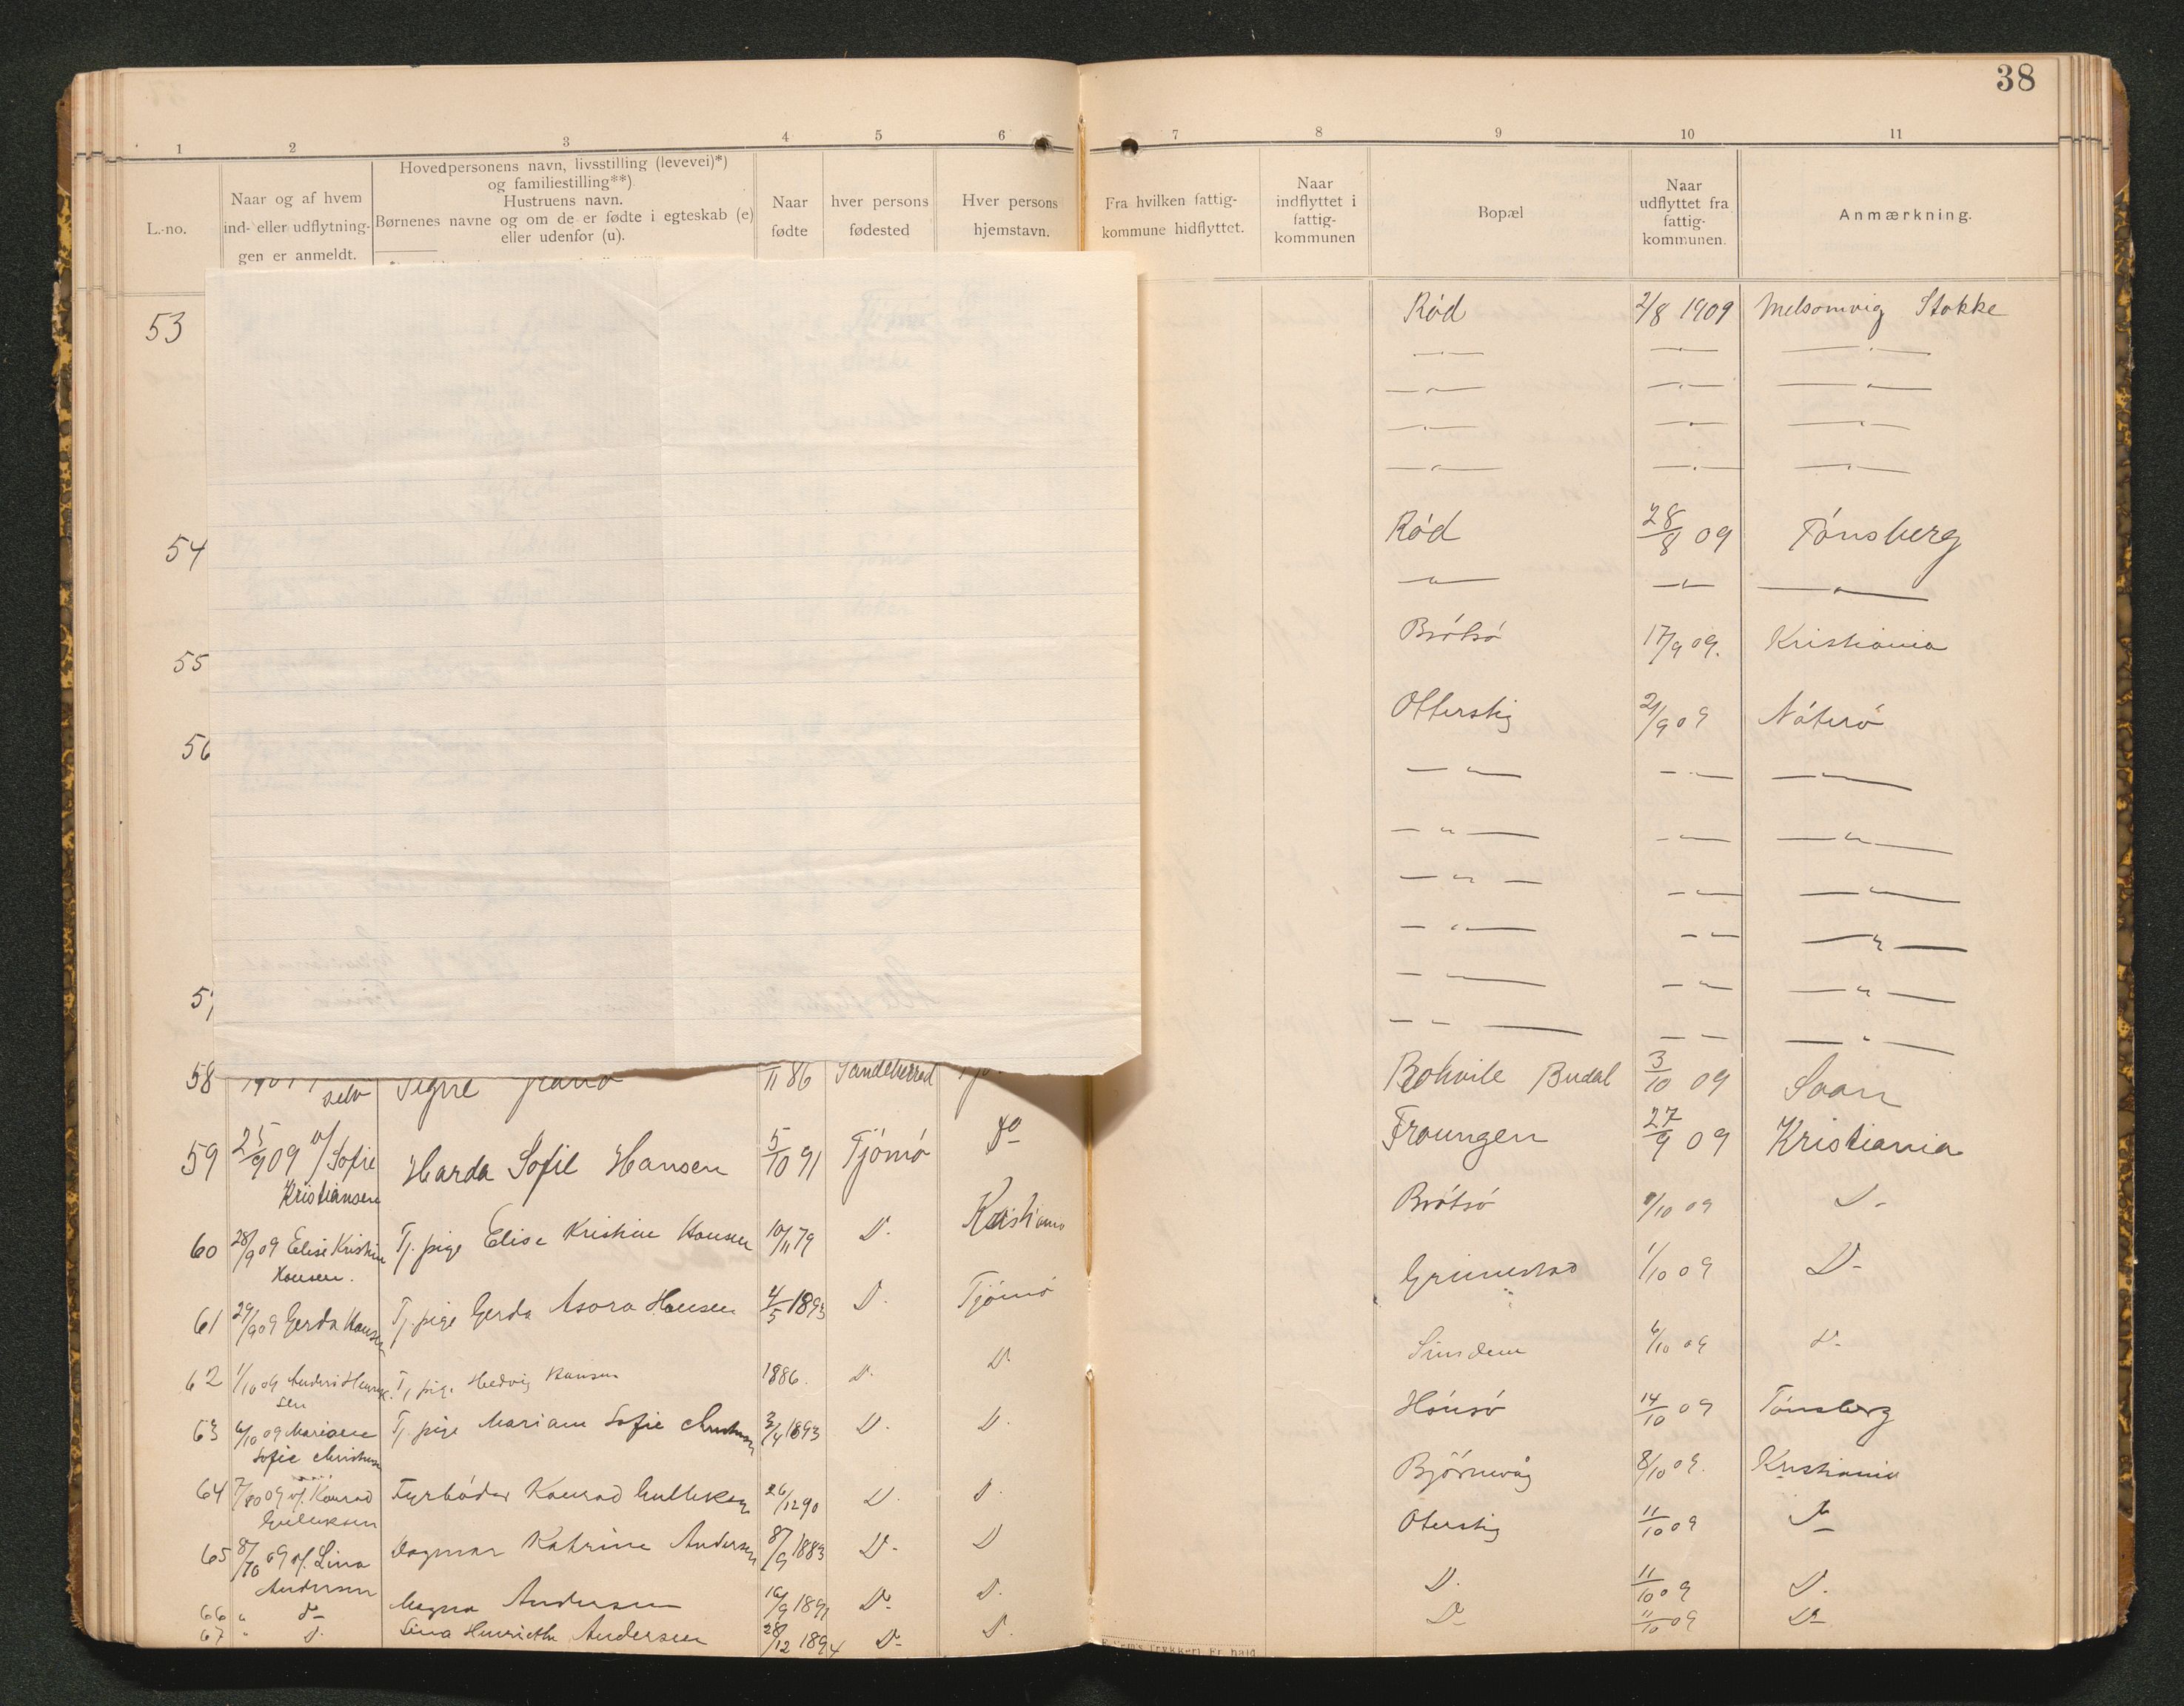 38
1 2 3 4 5 6 7 8 9 10 11
L.-no.
Naar og af hvem
ind- eller udflytnin-
gen er anmeldt.
Hovedpersonens navn, livsstilling (levevei)*)
og familiestilling**)
Hustruens navn.
Børnenes navne og om de er fødte i egteskab (e)
eller udenfor (u).
Naar
fødte
hver persons
fødested
Hver persons
hjemstavn.
Fra hvilken fattig-
kommune hidflyttet.
Naar
indflyttet i
fattig-
kommunen
Bopæl
Naar
udflyttet fra
fattig-
kommunen.
Anmærkning.
53 Rød 2/8 1909 Melsomvig Stokke
54 Rød 28/8 09 Tønsberg
55 Brøtsø 17/9 09. Kristiania
56 Otterstig 2/9 09 Nøterø
57
58 selv Signe /11 86 Sandeherred Budal 3/10 09
59 25/9 09 v/ Sofie Harda Sofie Hansen 5/10 91 Tjømø do Froungen 27/9 09 Kristiania
Kristiansen
60 28/9 09 Elise Kristin Tj. pige Elise Kristine Hansen 10/11 79 D. Kristiania Brøtsø 9/10 09 D-
Hansen.
61 29/9 09 Gerda Hansen Tj. pige Gerda Asora Hansen 4/5 1893 D. Tjømø Grimestad 1/10 09 D-
62 1/10 09 Anders Henrik- Tj. pige Hedvig Hansen 1886. D. D. 6/10 09 D-
sen
63 6/10 09 Mariane Tj. pige Mariane Sofie 3/4 1893 D. D. Hønsø 14/10 09 Tønsberg
Sofie
64 7/10 09 v/. Konrad Fyrbøder Konrad Gulliksen 26/12 90 D. D. Bjørnevåg 8/10 09. Kristiania
Gulliksen
65 8/10 09 v/. Lina Dagmar Katrine Andersen 8/9 1883 D- D Oterstig 11/10 09 D-
Andersen
66 " D- Magna Andersen 16/9 1891 D- D. D. 11/10 09 D.
67 " D. Lina Henriette Andersen 28/12 1894 D- D. D- 11/10 09 D-